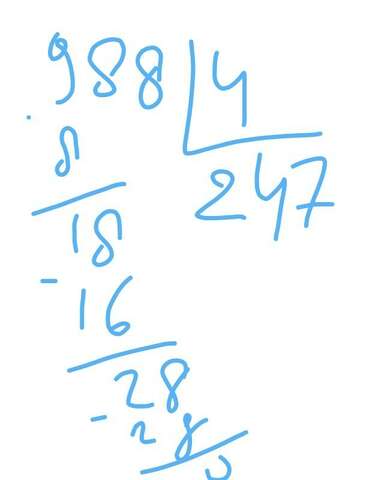 988 4
8 247
18
- 16
28
- 28
0